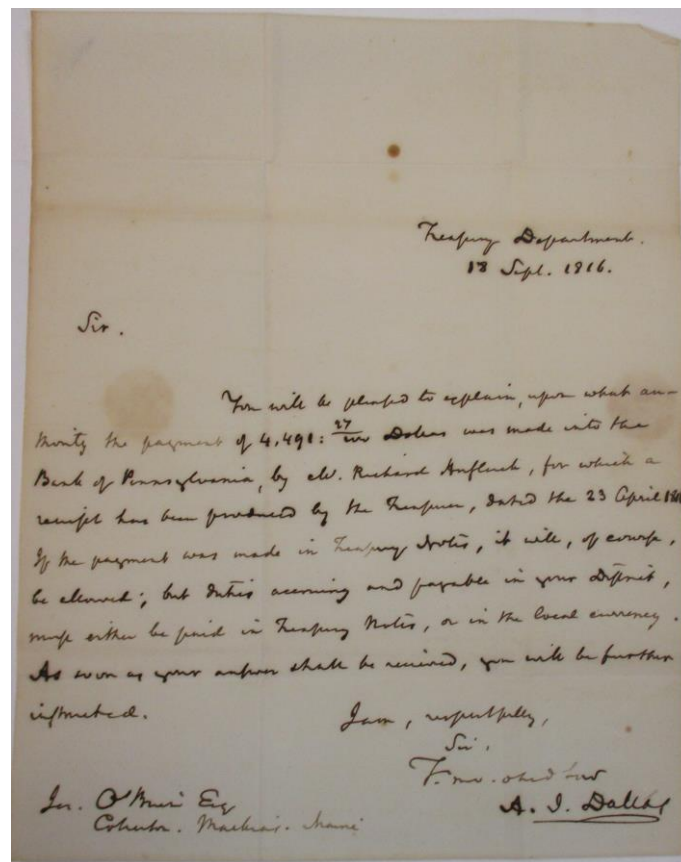 Treasury Department.
18 Sept. 1816.
Sir.
You will be pleased to explain, upon what au-
thority the payment of 4,491: 27/100 Dollars was made into the
Bank of Pennsylvania, by Mr. Richard, for which a
receipt has been produced by the Treasurer, dated the 23 April
If the payment was made in Treasury Notes, it will, of course,
be allowed; but duties accruing and payable in your District,
must either be paid in Treasury Notes, or in the local currency.
As soon as your answer shall be received, you will be further
instructed.
I am, respectfully,
Sir,
Y. mo. obed Serv
A. J. Dallas
O'Brien Esq
Collector. Machias. Maine